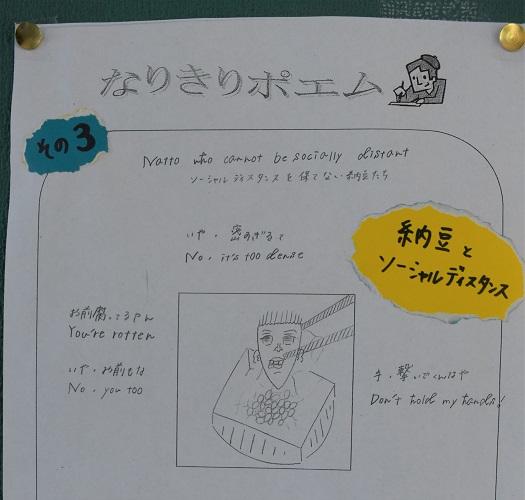 なりきりポエム
その3
Natto who cannot be socially distant
ソーシャルディスタンスを保てない納豆たち
納豆と
ソーシャルディスタンス
いや、密すぎるて
No, it's too dense
お前腐ってるやん
You're rotten
いや、お前もな
No, you too
手、繋いでくんなや
Don't hold my hands!